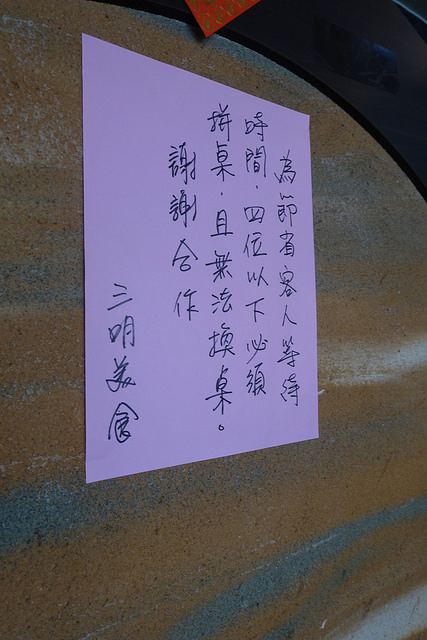 為節省客人等待
時間，四位以下必須
拼桌，且無法換桌。
謝謝合作
三明美食